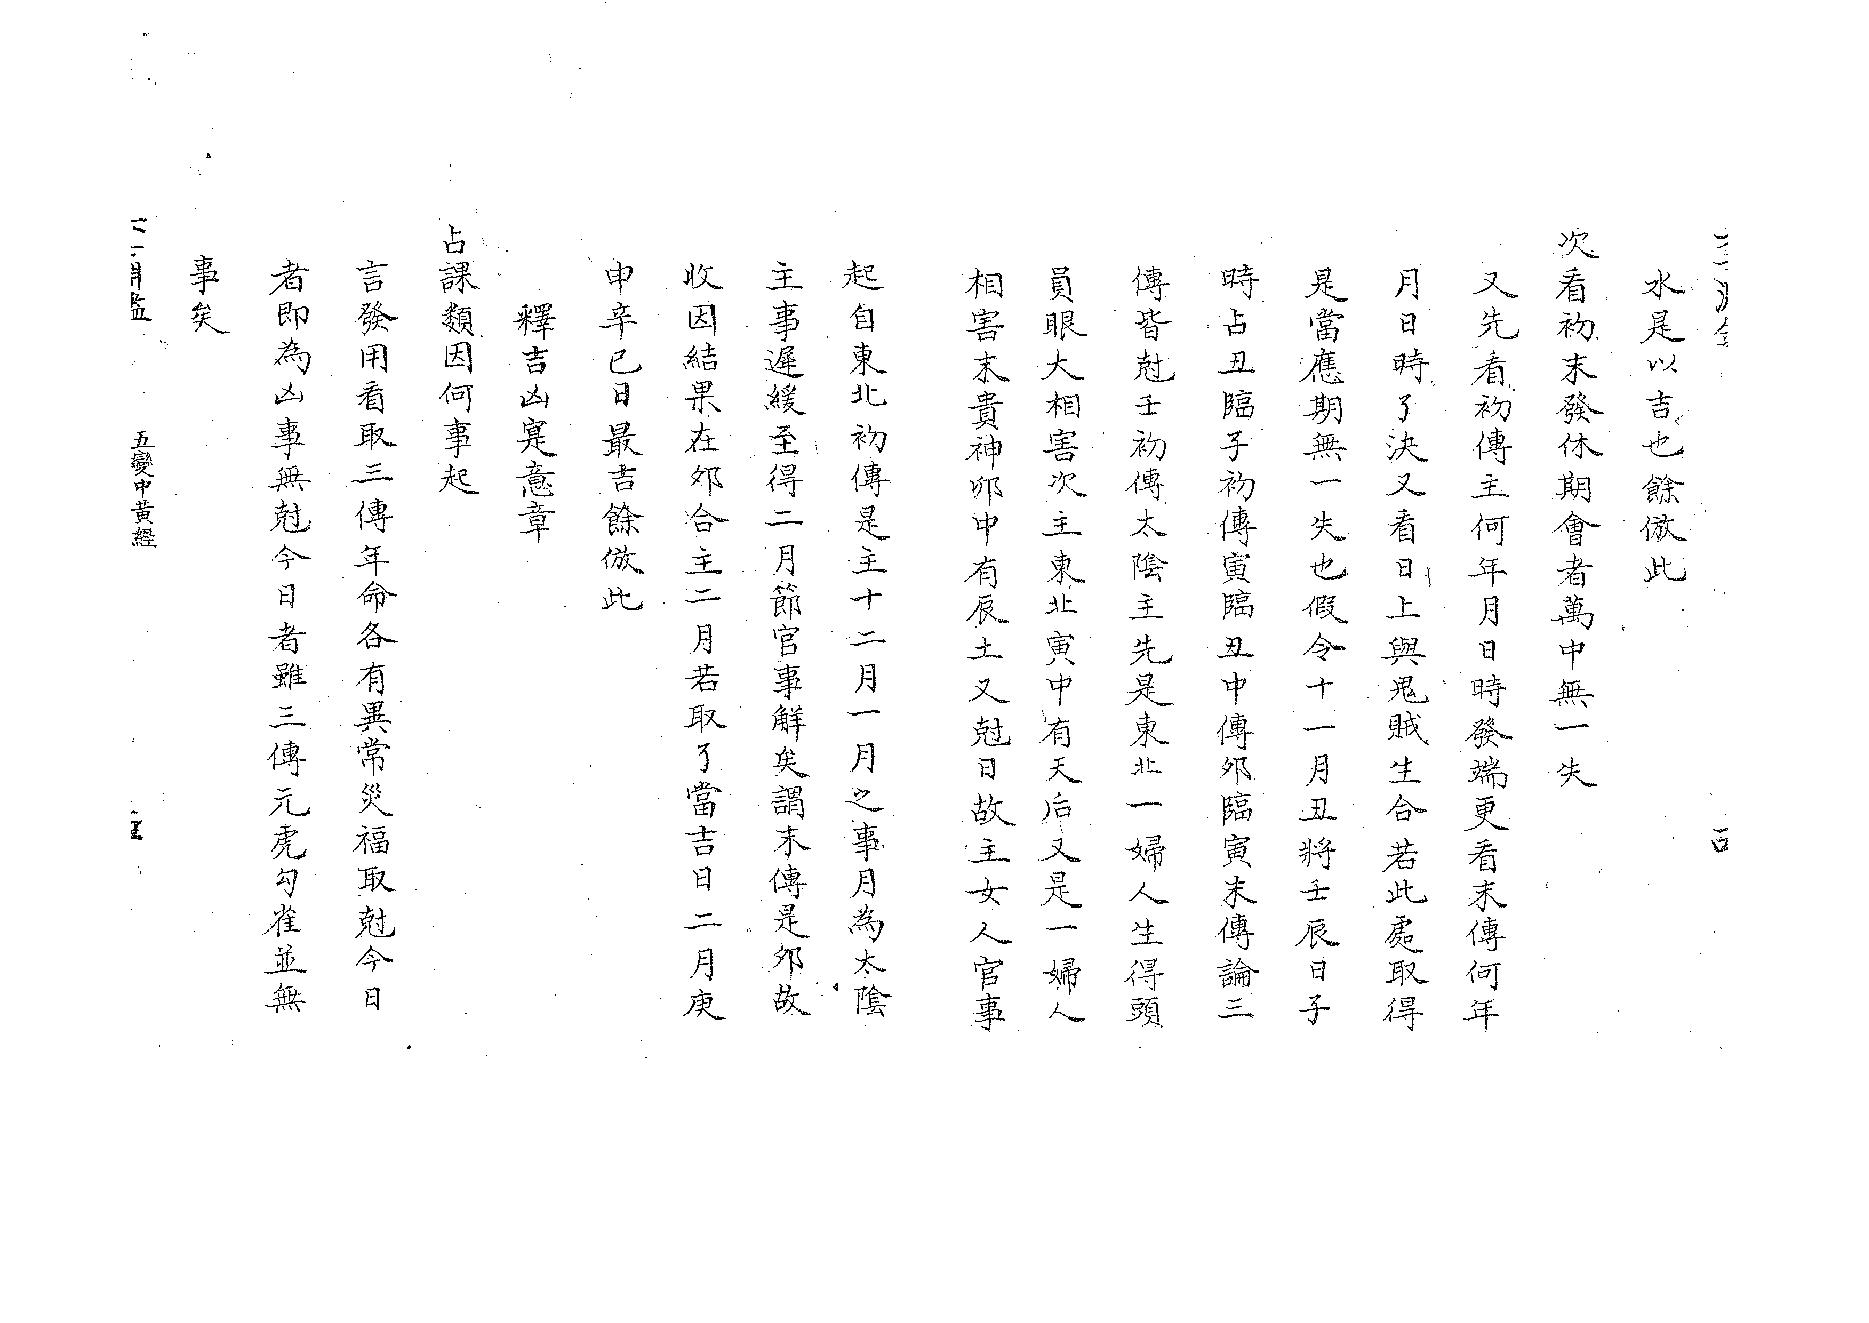 水是以吉也餘倣此
次看初末發休期會者萬中無一失
又先看初傳主何年月日時發端更看末傳何年
月日時了決又看日上與鬼賊生合若此處取得
是當應期無一失也假令十一月丑將壬辰日子
時占丑臨子初傳寅臨丑中傳夘臨寅末傳論三
傳皆尅壬初傳太陰主先是東北一婦人生得頭
員眼大相害次主東北寅中有天后又是一婦人
相害末貴神夘中有辰土又尅日故主女人官事
起自東北初傳是主十二月一月之事月為太陰
主事遲緩至得二月節官事解矣謂末傳是夘故
收因結果在夘合主二月若取了當吉日二月庚
申辛巳日最吉餘倣此
釋吉凶寔意章
占課類因何事起
言發用看取三傳年命各有異常災福取尅今日
者即為凶事無尅今日者雖三傳元虎勾雀並無
事矣
五變中黄經